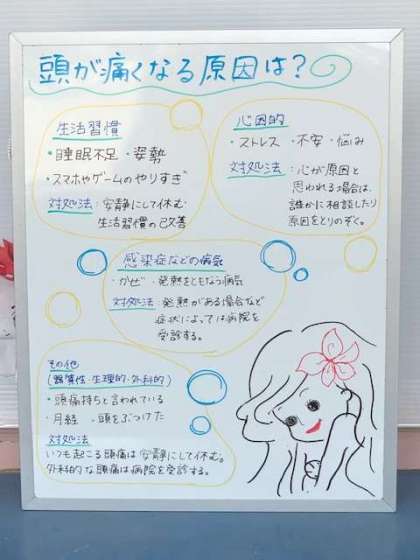 頭が痛くなる原因は？
生活習慣
・睡眠不足・姿勢
・スマホやゲームのやりすぎ
対処法：安静にして休む
生活習慣の改善
心因的
・ストレス ・不安 ・悩み
対処法：心が原因と
思われる場合は、
誰かに相談したり
原因をとりのぞく。
感染症などの病気
・かぜ ・発熱をともなう病気
対処法：発熱がある場合など
症状によっては病院を
受診する。
その他
(器質性・生理的・外科的)
・頭痛持ちと言われている
・月経 ・頭をぶつけた
対処法
いつも起こる頭痛は安静にして休む。
外科的な頭痛は病院を受診する。